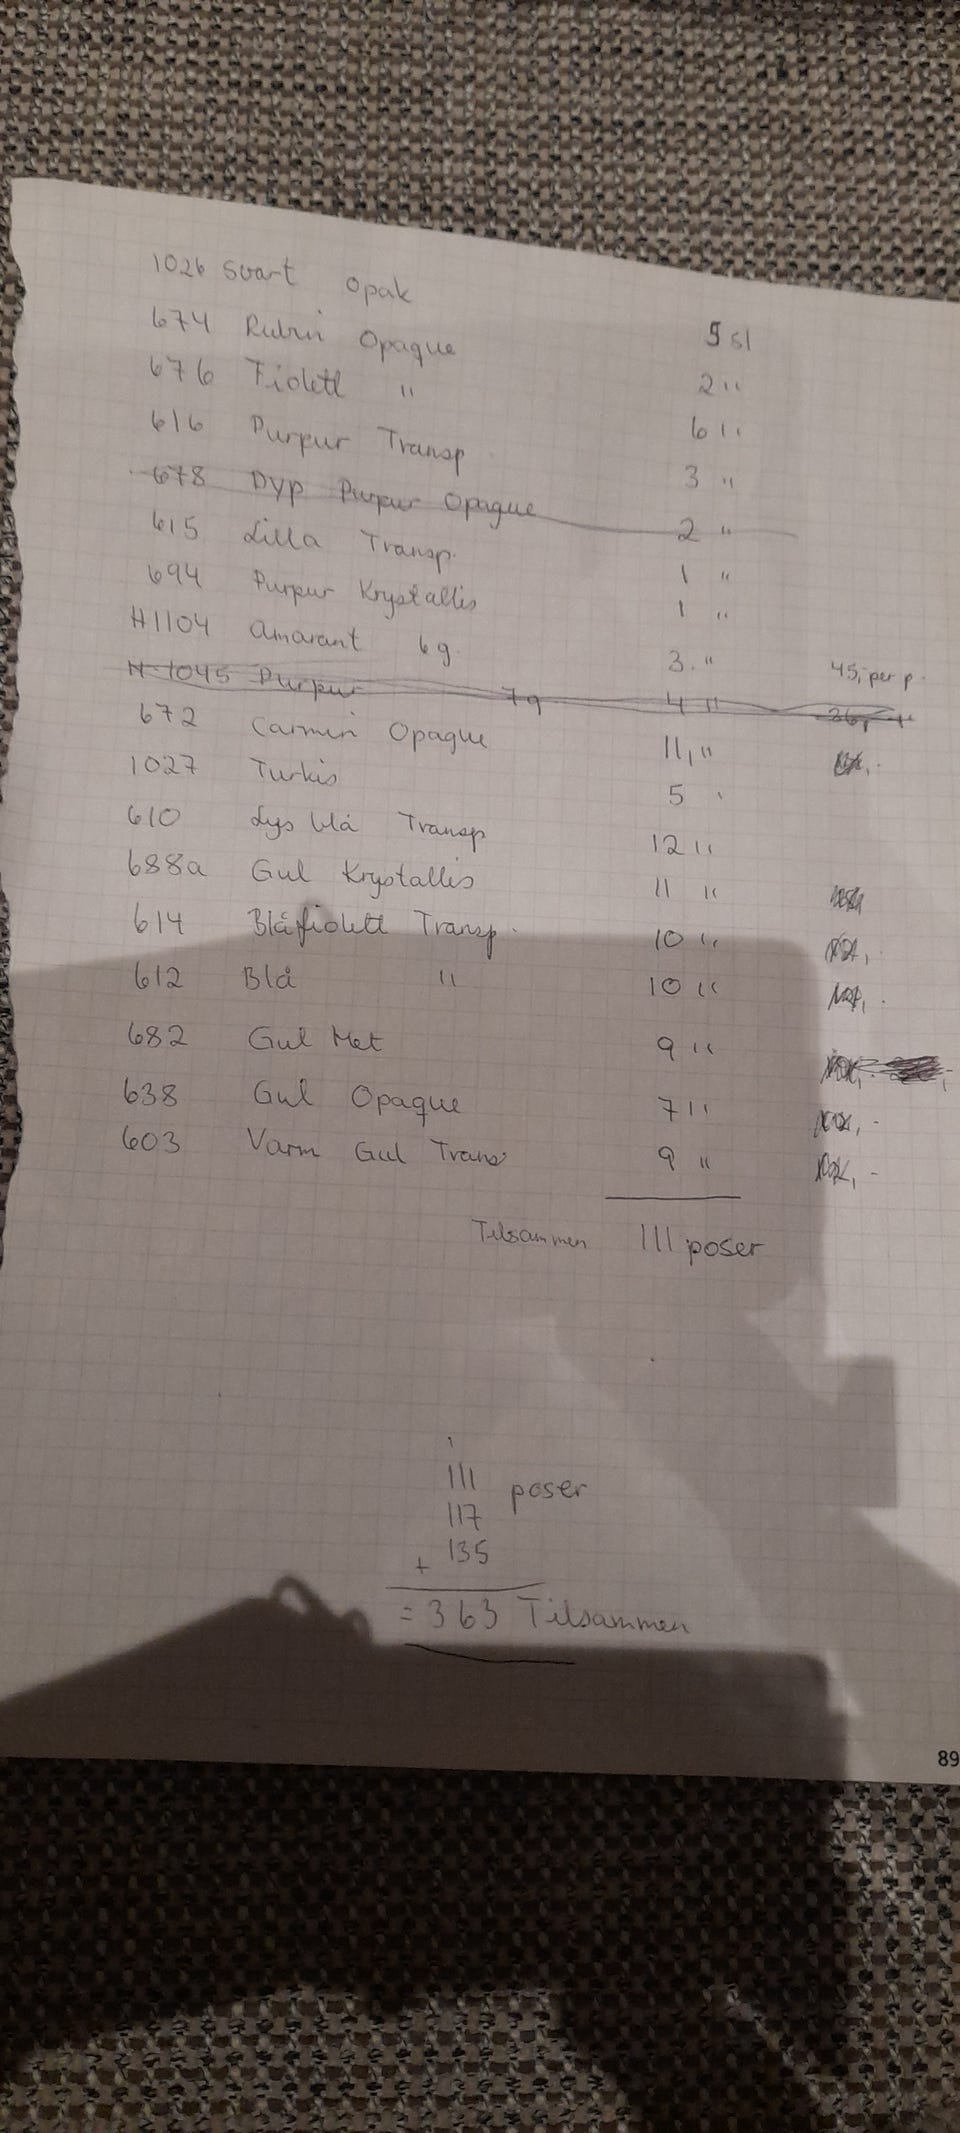 1026 Svart Opak 5 sl
674 Rubin Opaque 2 "
676 Fiolett " 6 "
616 Purpur Transp. 3 "
678 Dyp Purpur Opaque 2 "
615 Lilla Transp. 1 "
694 Purpur Krystallis 1 "
H1104 Amarant 6g. 3. " 45,- per p.
H 1045 Purpur 7g 4 "
672 Carmin Opaque 11, "
1027 Turkis 5 '
610 Lys blå Transp 12 "
688a Gul Krystallis 11 "
614 Blåfiolett Transp. 10 "
612 Blå " 10 "
682 Gul Met 9 "
638 Gul Opaque 7 "
603 Varm Gul Trans 9 "
Tilsammen 111 poser
111 poser
117
+ 135
= 363 Tilsammen
89